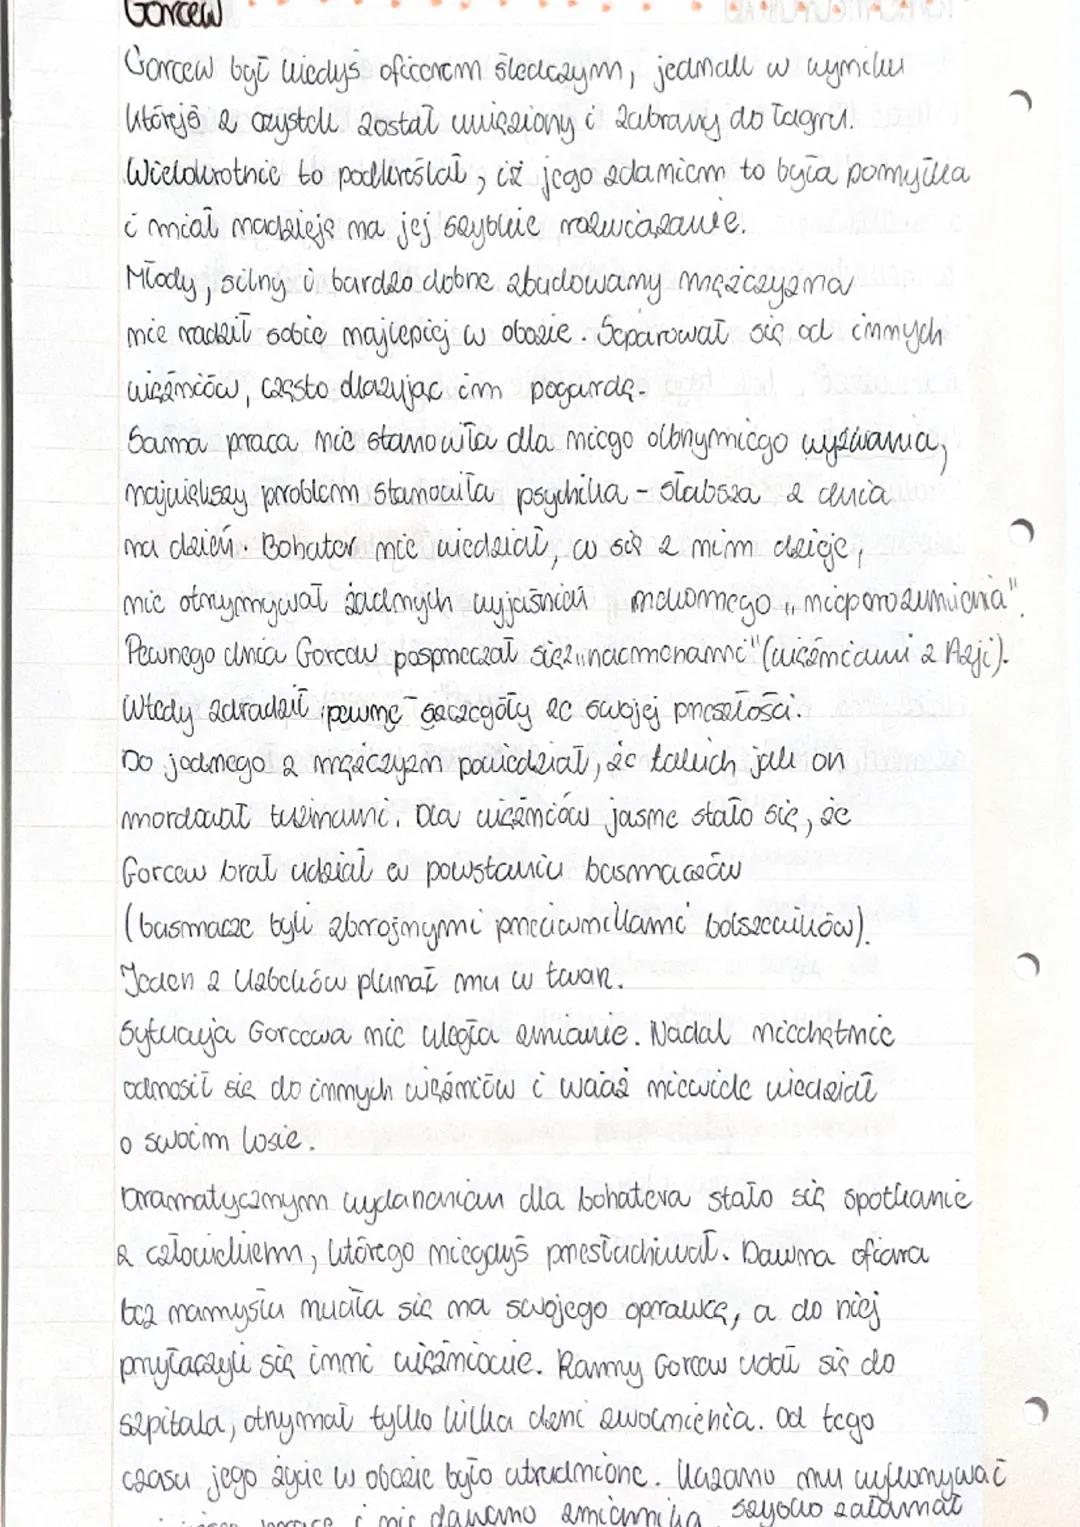 Gorcew
Gorcew był kiedyś oficerem śledczym, jednak w wyniku
którejś z czystek został uwięziony i zabrany do łagru.
Wielokrotnie to podkreślał, iż jego zdaniem to była pomyłka
i miał nadzieję na jej szybkie rozwiązanie.
Młody, silny i bardzo dobrze zbudowany mężczyzna
nie radził sobie najlepiej w obozie. Separował się od innych
więźniów, często okazując im pogardę.
Sama praca nie stanowiła dla niego olbrzymiego wyzwania,
największy problem stanowiła psychika - słabsza z dnia
na dzień. Bohater nie wiedział, co się z nim dzieje,
nie otrzymywał żadnych wyjaśnień rzekomego "nieporozumienia".
Pewnego dnia Gorcew posprzeczał się z "nacmenami" (więźniami z Azji).
Wtedy zdradził pewne szczegóły ze swojej przeszłości.
Do jednego z mężczyzn powiedział, że takich jak on
mordował tuzinami. Dla więźniów jasne stało się, że
Gorcew brał udział w powstaniu basmaczów
(basmacze byli zbrojnymi przeciwnikami bolszewików).
Jeden z Uzbeków plunął mu w twarz.
Sytuacja Gorcewa nie uległa zmianie. Nadal niechętnie
odnosił się do innych więźniów i wciąż niewiele wiedział
o swoim losie.
Dramatycznym wydarzeniem dla bohatera stało się spotkanie
z człowiekiem, którego niegdyś przesłuchiwał. Dawna ofiara
bez namysłu rzuciła się na swojego oprawcę, a do niej
przyłączyli się inni więźniowie. Ranny Gorcew udał się do
szpitala, otrzymał tylko kilka dni zwolnienia. Od tego
czasu jego życie w obozie było utrudnione. Kazano mu wykonywać
i nie dawano zmiennika. Szybko załamał